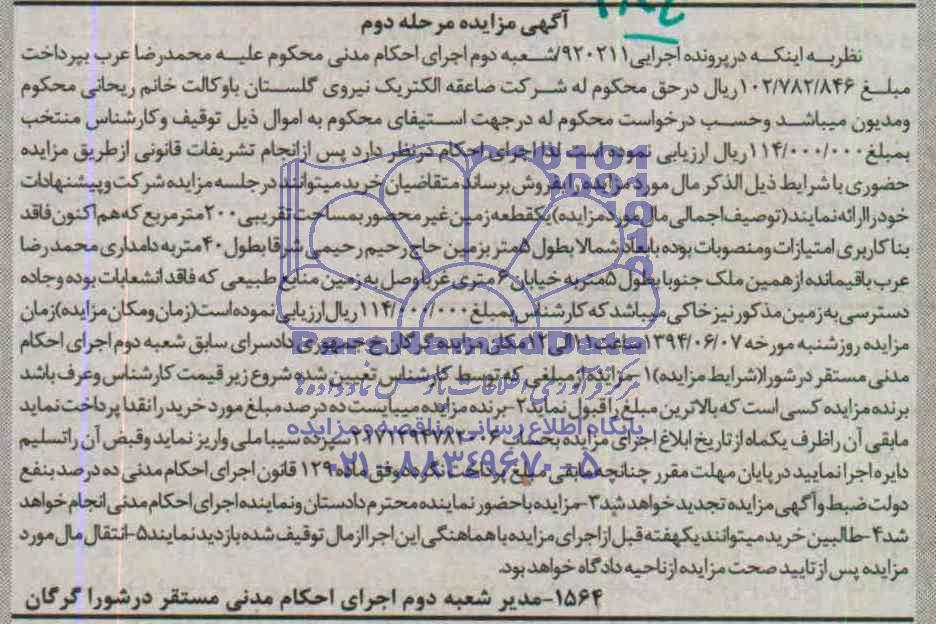 آگهی مزایده مرحله دوم
نظر به اینکه در پرونده اجرایی ۹۲۰۲۱۱/شعبه دوم اجرای احکام مدنی محکوم علیه محمدرضا عرب بپرداخت
مبلغ ۱۰۲/۷۸۲/۸۴۶ ریال در حق محکوم له شرکت صاعقه الکتریک نیروی گلستان باوکالت خانم ریحانی محکوم
ومدیون میباشد وحسب درخواست محکوم له درجهت استیفای محکوم به اموال ذیل توقیف وکارشناس منتخب
بمبلغ ۱۱۴/۰۰۰/۰۰۰ ریال ارزیابی نموده است لذا اجرای احکام درنظر دارد پس ازانجام تشریفات قانونی ازطریق مزایده
حضوری با شرایط ذیل الذکر مال مورد مزایده رابفروش برساند متقاضیان خرید میتوانند در جلسه مزایده شرکت و پیشنهادات
خود را ارائه نمایند (توصیف اجمالی مال مورد مزایده) یکقطعه زمین غیر محصور بمساحت تقریبی ۲۰۰ متر مربع که هم اکنون فاقد
بنا کاربری امتیازات ومنصوبات بوده بابعاد شمالا بطول ۵ متر بزمین حاج رحیم رحیمی شرقا بطول ۴۰ متر به دامداری محمد رضا
عرب باقیمانده از همین ملک جنوبا بطول ۵ متر به خیابان ۶ متری غربا وصل به زمین منابع طبیعی که فاقد انشعابات بوده و جاده
دسترسی به زمین مذکور نیز خاکی میباشد که کارشناس بمبلغ ۱۱۴/۰۰۰/۰۰۰ ریال ارزیابی نموده است (زمان ومکان مزایده) زمان
مزایده روز شنبه مورخه ۱۳۹۴/۰۶/۰۷ ساعت ۱۱ الی ۱۲ مکان مزایده گرگان خ جمهوری دادسرای سابق شعبه دوم اجرای احکام
مدنی مستقر در شورا (شرایط مزایده) ۱-مزایده از مبلغی که توسط کارشناس تعیین شده شروع زیر قیمت کارشناس وعرف باشد
برنده مزایده کسی است که بالاترین مبلغ را قبول نماید ۲-برنده مزایده میبایست ده درصد مبلغ مورد خرید را نقدا پرداخت نماید
مابقی آن را ظرف یکماه از تاریخ ابلاغ اجرای مزایده بحساب ۲۱۷۱۲۹۴۷۸۲۰۰۶ سپرده سیبا ملی واریز نماید وقبض آن را تسلیم
دایره اجرا نمایید در پایان مهلت مقرر چنانچه مابقی مبلغ پرداخت نگردد وفق ماده ۱۲۹ قانون اجرای احکام مدنی ده درصد بنفع
دولت ضبط و آگهی مزایده تجدید خواهد شد ۳-مزایده با حضور نماینده محترم دادستان و نماینده اجرای احکام مدنی انجام خواهد
شد ۴-طالبین خرید میتوانند یکهفته قبل از اجرای مزایده با هماهنگی این اجرا از مال توقیف شده بازدید نمایند ۵-انتقال مال مورد
مزایده پس از تایید صحت مزایده از ناحیه دادگاه خواهد بود.
۱۵۶۴-مدیر شعبه دوم اجرای احکام مدنی مستقر درشورا گرگان
ParsNamadData
پایگاه اطلاع رسانی مناقصه و مزایده
۰۲۱-۸۸۳۴۹۶۷۰-۵